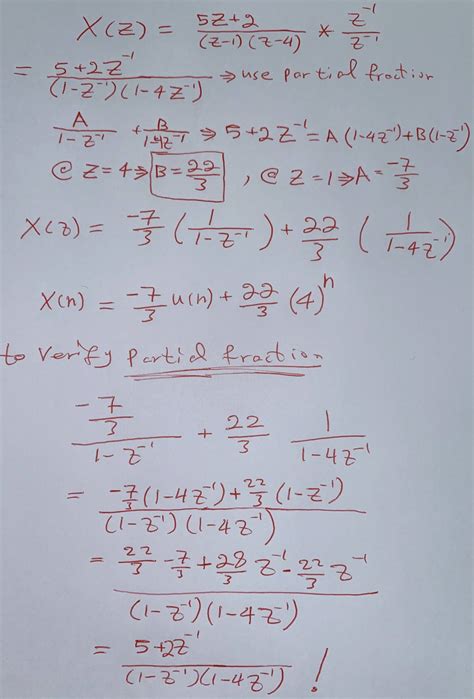 X(z) = (5z+2)/((z-1)(z-4)) * z^-1/z^-1
= (5+2z^-1)/((1-z^-1)(1-4z^-1)) → use partial fraction
A/(1-z^-1) + B/(1-4z^-1) ⇒ 5+2z^-1 = A(1-4z^-1)+B(1-z^-1)
@ z=4 ⇒ B = 22/3 , @ z=1 ⇒ A = -7/3
X(z) = -7/3 (1/(1-z^-1)) + 22/3 (1/(1-4z^-1))
X(n) = -7/3 u(n) + 22/3 (4)^n
to verify partial fraction
(-7/3)/(1-z^-1) + 22/3 1/(1-4z^-1)
= (-7/3(1-4z^-1)+22/3(1-z^-1))/((1-z^-1)(1-4z^-1))
= (22/3 - 7/3 + 28/3 z^-1 - 22/3 z^-1)/((1-z^-1)(1-4z^-1))
= (5+2z^-1)/((1-z^-1)(1-4z^-1)) !